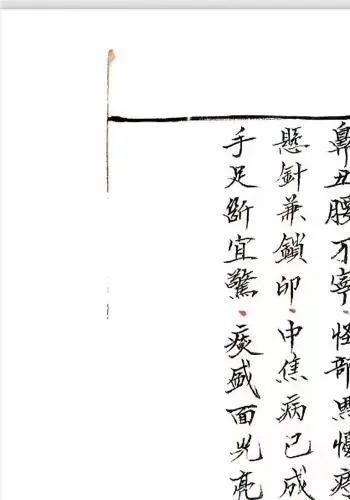 鼻丑腰不寧·怪部黑慢疼
懸針兼鎖印·中焦病已成
手足斷宜驚·痰盛面光亮